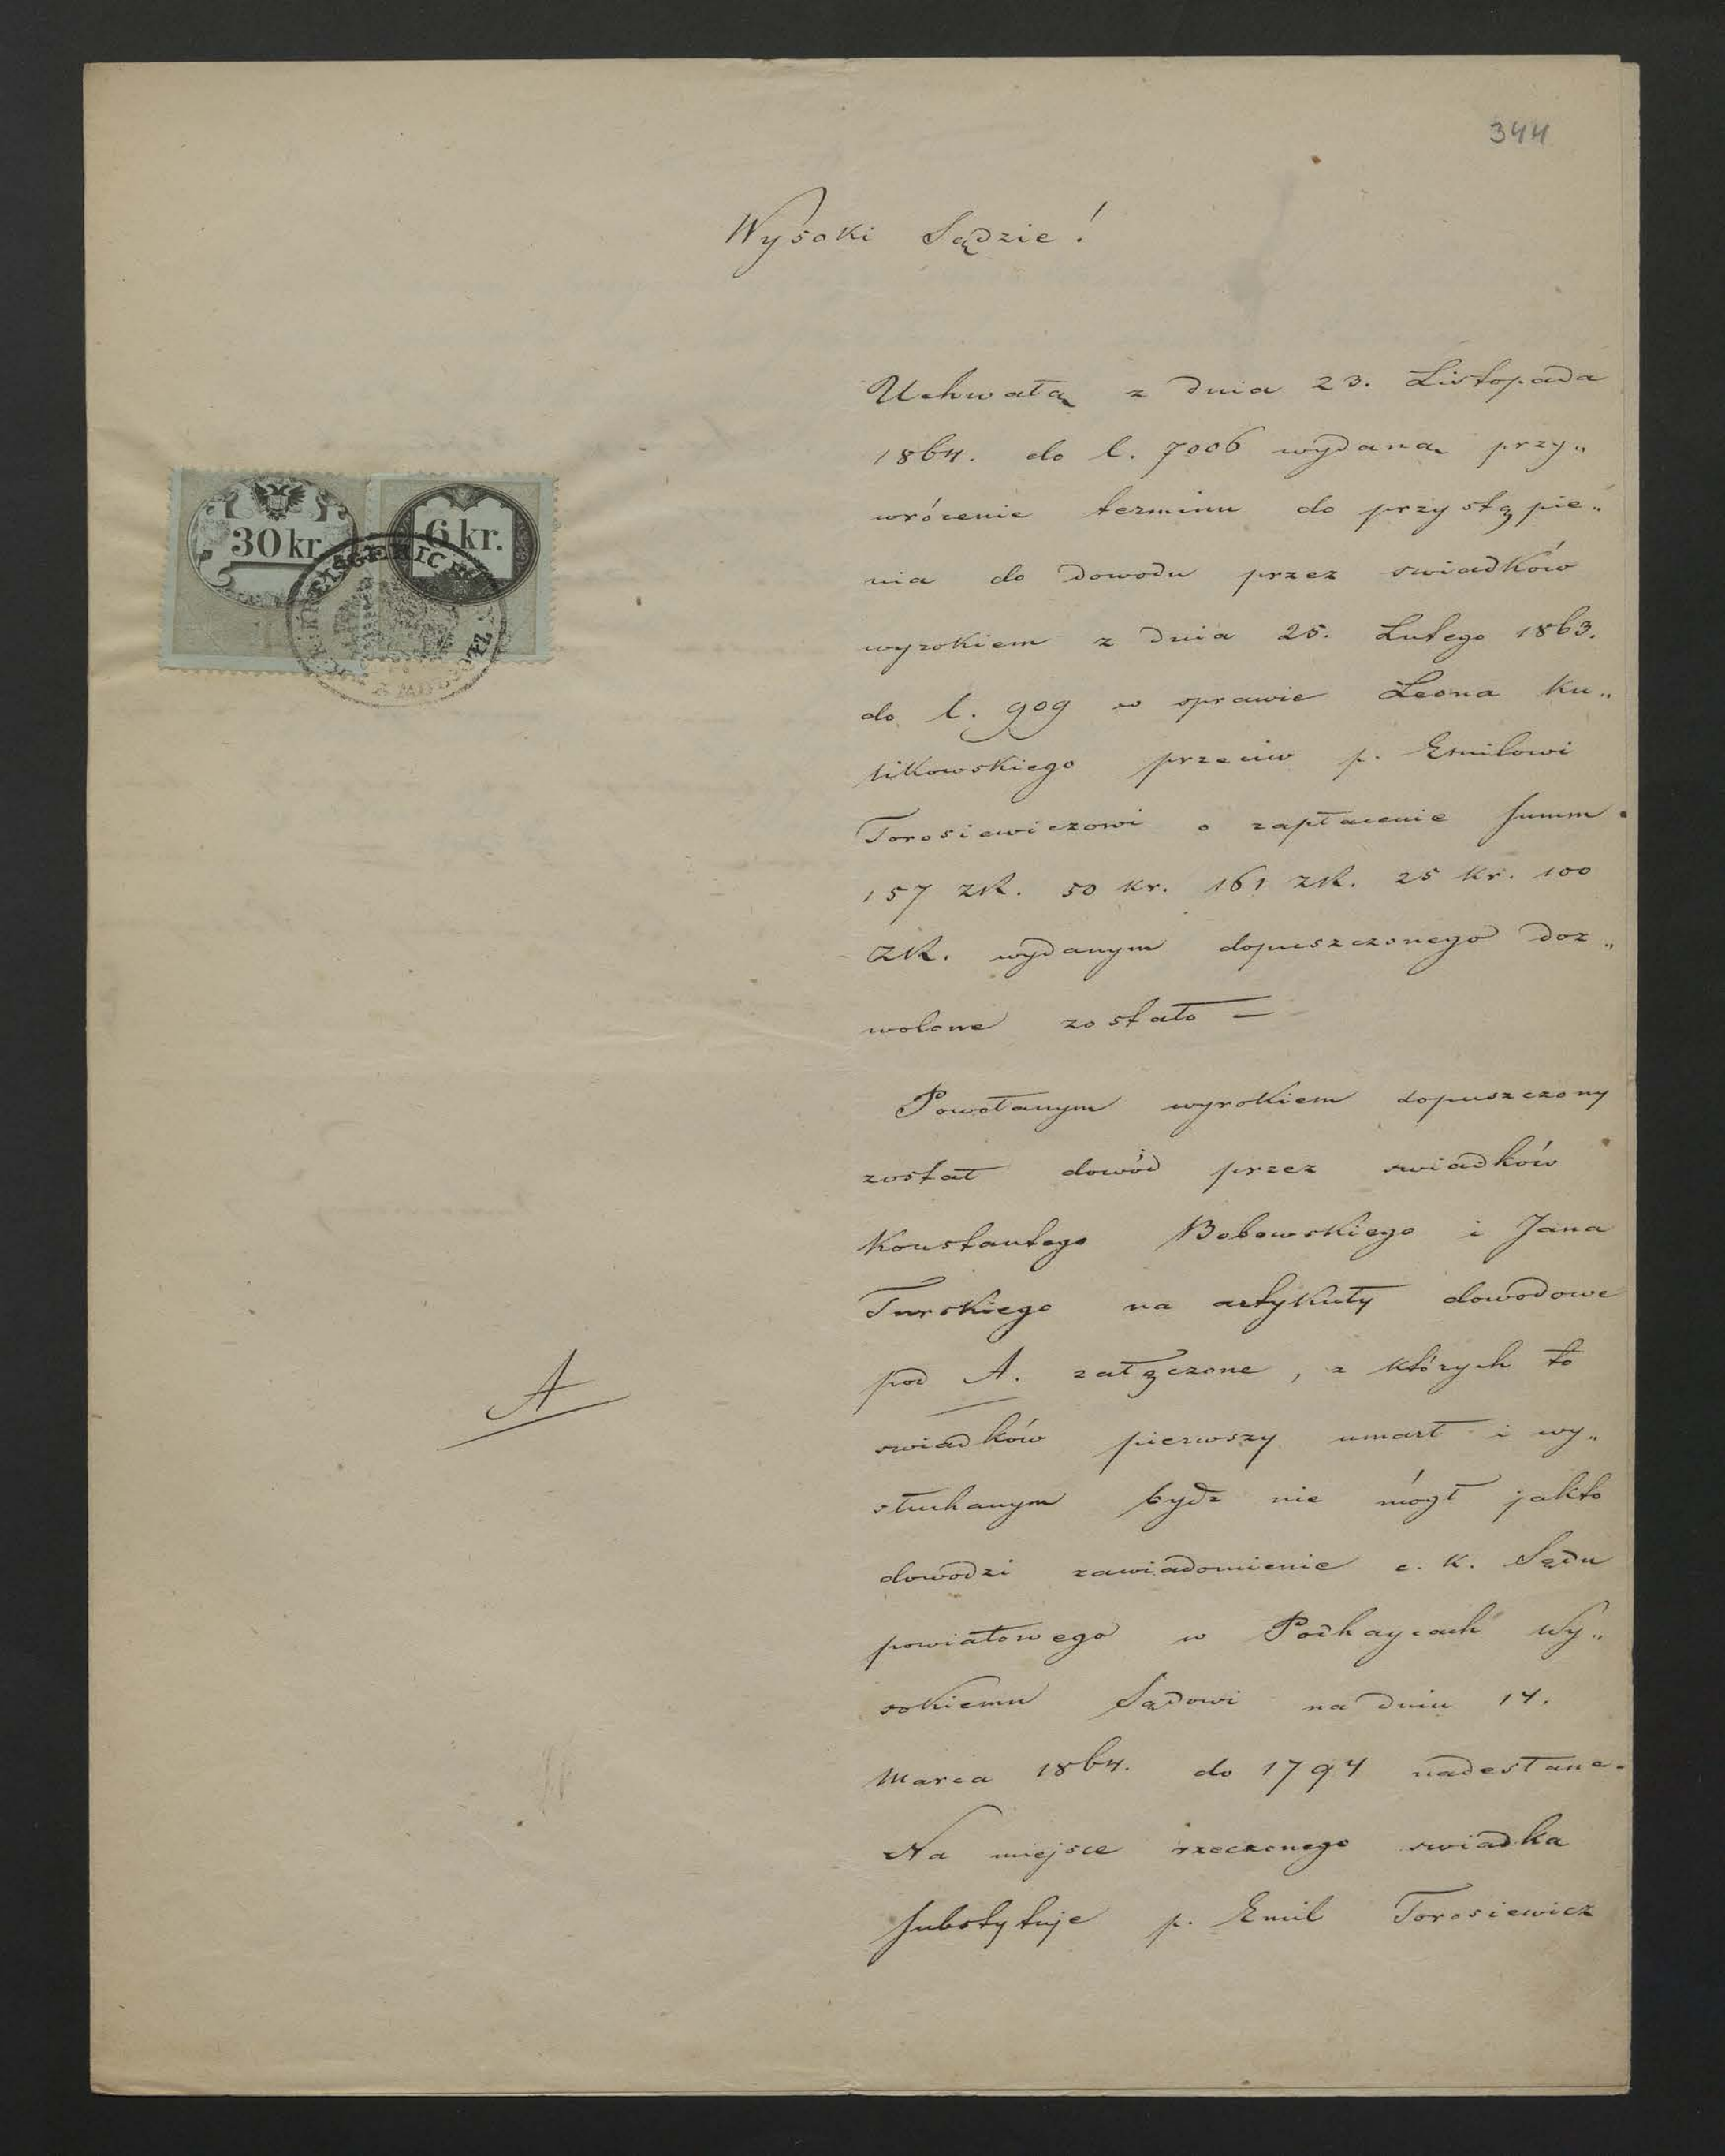 344
Wysoki Sądzie!
Uchwałą z dnia 23. Listopada
1864. do l. 7006 wydaną przy„
wrócenie terminu do przystąpie„
nia do dowodu przez swiadków
wyrokiem z dnia 25. Lutego 1863.
do l. 909 w sprawie Leona Ku„
likowskiego przeciw p. Emilowi
Torosiewiczowi o zapłacenie summ
157 ZR. 50 kr. 161 ZR. 25 kr. 100
ZR. wydanym dopuszczonego doz„
wolone zostało —
Powołanym wyrokiem dopuszczony
został dowód przez swiadków
Konstantego Bobowskiego i Jana
Turskiego na artykuły dowodowe
pod A. załączone, z których to
swiadków pierwszy umarł i wy„
słuchanym bydz nie mógł jakto
dowodzi zawiadomienie c. k. Sądu
powiatowego w Podhaycach Wy„
sokiemu Sądowi na dniu 14.
Marca 1864. do 1794 nadesłane.
Na miejsce rzeczonego swiadka
substytuje p. Emil Torosiewicz
A
30 kr.
6 kr.
K. K. KREISGERICHT